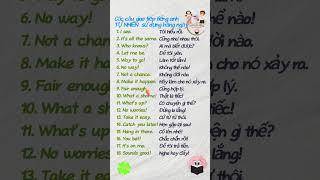 Các câu giao tiếp tiếng anh
TỰ NHIÊN sử dụng hằng ngày
1. I see. Tôi hiểu rồi.
2. It's all the same. Cũng như nhau thôi.
3. Who knows? Ai mà biết được?
4. Let me be. Để tôi yên.
5. Way to go! Làm tốt lắm!
6. No way! Không thể nào!
7. Not a chance. Không đời nào.
8. Make it happen. Hãy làm cho nó xảy ra.
9. Fair enough. Cũng hợp lý.
10. What a shame! Thật là tiếc!
11. What's up? Có chuyện gì thế?
12. No worries! Đừng lo lắng!
13. Take it easy. Cứ từ từ thôi.
14. Catch you later! Hẹn gặp lại sau!
15. Hang in there. Cố lên nhé!
16. You bet! Chắc chắn rồi!
17. It's on me. Để tôi trả tiền.
18. Sounds good! Nghe hay đấy!
6. No way!
7. Not a chan
8. Make it ha
9. Fair enough
10. What a sh
11. What's up?
12. No worries
13. Take it eas
nào!
nào.
cho nó xảy ra.
lý.
tiếc!
yện gì thế?
o lắng!
ừ thôi.